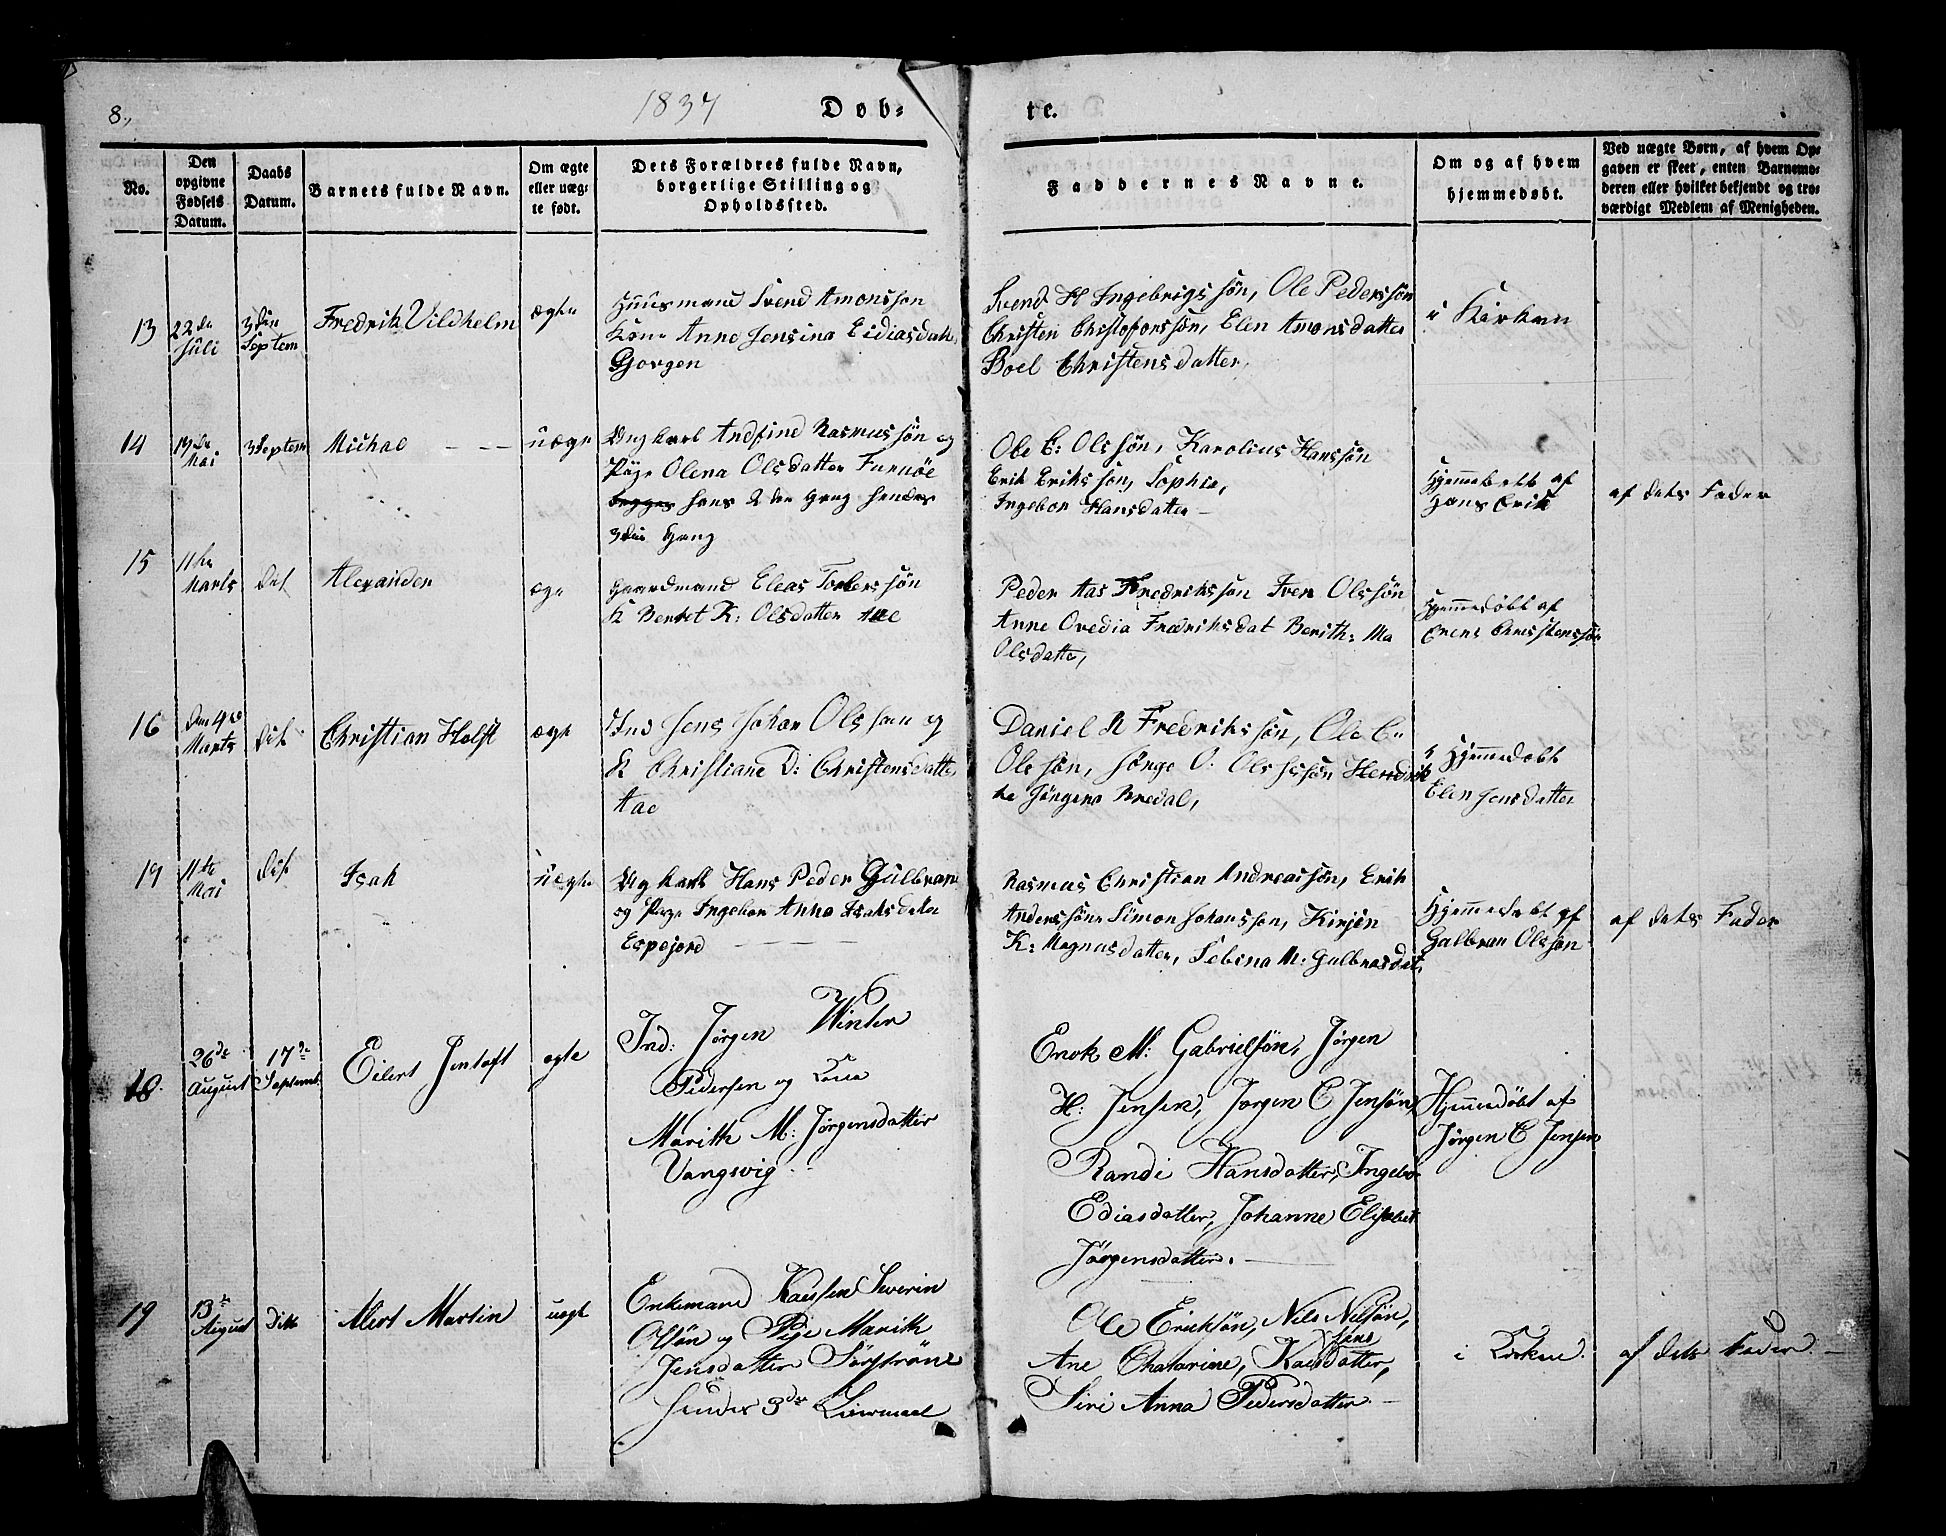 8,
1837
Døb=
te.
No.
Den
opgivne
Fødsels
Datum.
Daabs
Datum.
Barnets fulde Navn.
Om ægte
eller uæg-
te født.
Dets Forældres fulde Navn,
borgerlige Stilling og
Opholdssted.
Faddernes Navne.
Om og af hvem
hjemmedøbt.
Ved uægte Børn, af hvem Op-
gaven er skeet, enten Barnemo-
deren eller hvilket bekjendt og tro-
værdigt Medlem af Menigheden.
13
22de
Juli
3die
Septem
Fredrik Vildhelm
ægte
Huusmand Svend Amonsson
Kone Anne Jensina Eidiasdatt
Gjorgen
Svend H Ingebrigssøn, Ole Pederssøn
Christen Chrstoforssøn, Elen Amonsdatter
Boel Christensdatter,
i Kirken
14
17de
Mai
3Septem
Michal
uægte
Ungkarl Andfind Rasmussøn og
Pige Olena Olsdatter Furnøe
begges hans 2den Gang hendes
3die Gang
Ole C: Olssøn, Karolius Hanssøn
Erik Erikssøn, Sophia,
Ingebor Hansdatter
Hjemmedøbt af
Hans Erik
af dets Fader
15
11te
Marts
dit
Alexander
ægte
Gaardmand Eleas Tollerssøn
K Beret K: Olsdatter Aae
Peder Aas Fredrikssøn Iver Olssøn
Anne Ovedia Fredriksdat Berith: Ma
Olsdatte,
Hjemmedøbt af
Christenssøn
16
den 4de
Marts
dit
Christian Holst
ægte
Ind Jens Johan Olssøn og
K Christiane D: Christensdatter
Aae
Daniel N Fredrikssøn, Ole C:
Olssøn, Jørge O: Olssøn Hendrik
ke Jørgena Bredal,
Hjemmedøbt
Elen Jensdatter
17
11te
Mai
dit
Isak
uægte
Ugkarl Hans Peder Gulbran
og Pige Ingebor Anna Isaksdater
Espejord
Rasmus Christian Andreassøn, Erik
Anderssønn Simon Johanssøn, Kirsten
K: Magnusdatter, Sebina M: Gulbransdat,
Hjemmedøbt af
Gulbran Olsson
af dets Fader
18.
26de
August
17de
Septemb.
Eilert Jentoft
ægte
Ind: Jørgen Winter
Pedersen og Kone
Marith M: Jørgensdatter
Vangsvig
Enok M: Gabrielsøn, Jørgen
H: Jensen, Jørgen C Jensøn,
Randi Hansdatter, Ingebo
Ediasdatter, Johanne Elisabet
Jørgensdatter.
Hjemmedøbt af
Jørgen C Jensen
19
13de
August
ditto
Alert Martin
uægte
Enkemand Severin
Olsøn og Pige Marith
Jensdatter Sørstrøne
hendes 3de Leiermaal
Ole Ericksøn, Nils Nilsøn,
Jens
Ane Chatarine, Kaisdatter,
Siri Anna Pedersdatter.
i Kirken.
af dets Fader.